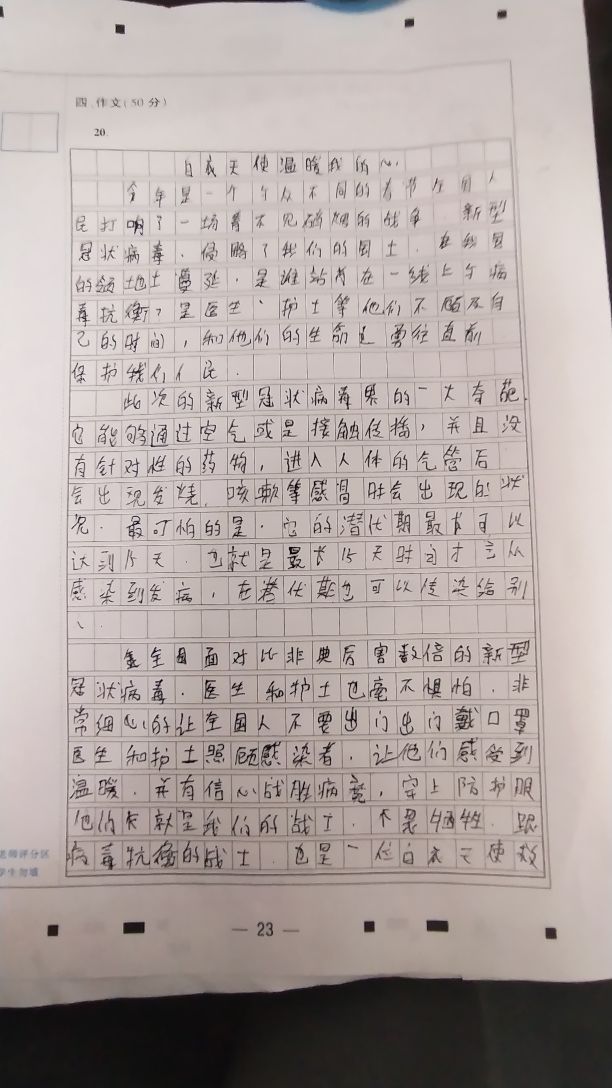 四、作文(50分)
20.
白衣天使温暖我的心
今年是一个与众不同的春节全国人
民打响了一场看不见硝烟的战争．新型
冠状病毒．侵略了我们的国土．在我国
的领土地上蔓延．是谁站在一线上与病
毒抗衡？是医生、护士等他们不顾及自
己的时间，和他们的生命勇往直前
保护我们人民．
此次的新型冠状病毒界的一大奇葩．
它能够通过空气或是接触传播，并且没
有针对性的药物，进入人体的气管后
会出现发烧．咳嗽等感冒时会出现的状
况．最可怕的是．它的潜伏期最长可以
达到15天．也就是最长15天时间才会从
感染到发病，在潜伏期也可以传染给别
人．
全国面对比非典厉害数倍的新型
冠状病毒．医生和护士也毫不惧怕．非
常细心的让全国人不要出门出门戴口罩
医生和护士照顾感染者．让他们感受到
温暖．并有信心战胜病毒，穿上防护服
他们就是我们的战士．不畏牺牲．跟
病毒抗衡的战士．也是一位白衣天使救
老师评分区
学生勿填
— 23 —